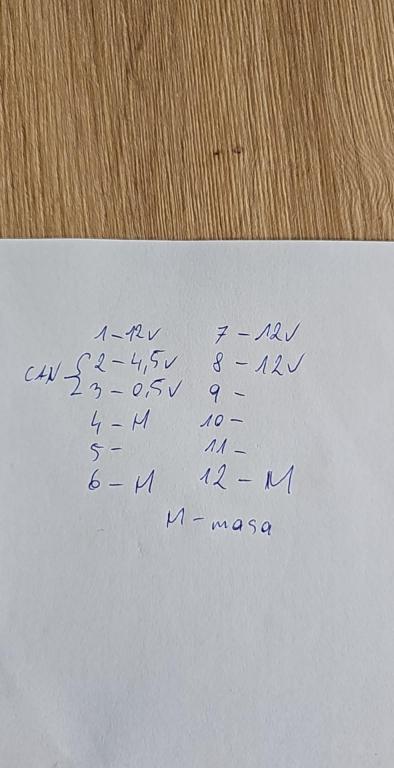 1-12V 7-12V
CAN { 2-4,5V 8-12V
3-0,5V 9-
4-M 10-
5- 11-
6-M 12-M
M-masa